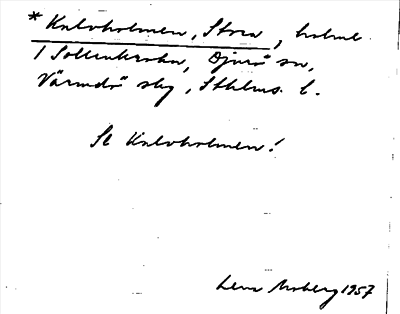 * Kalvholmen, Stora, holme
i Sollenkroka, Djurö sn,
Värmdö skg, Sthlms l.
Se Kalvholmen!
Lena Moberg 1957